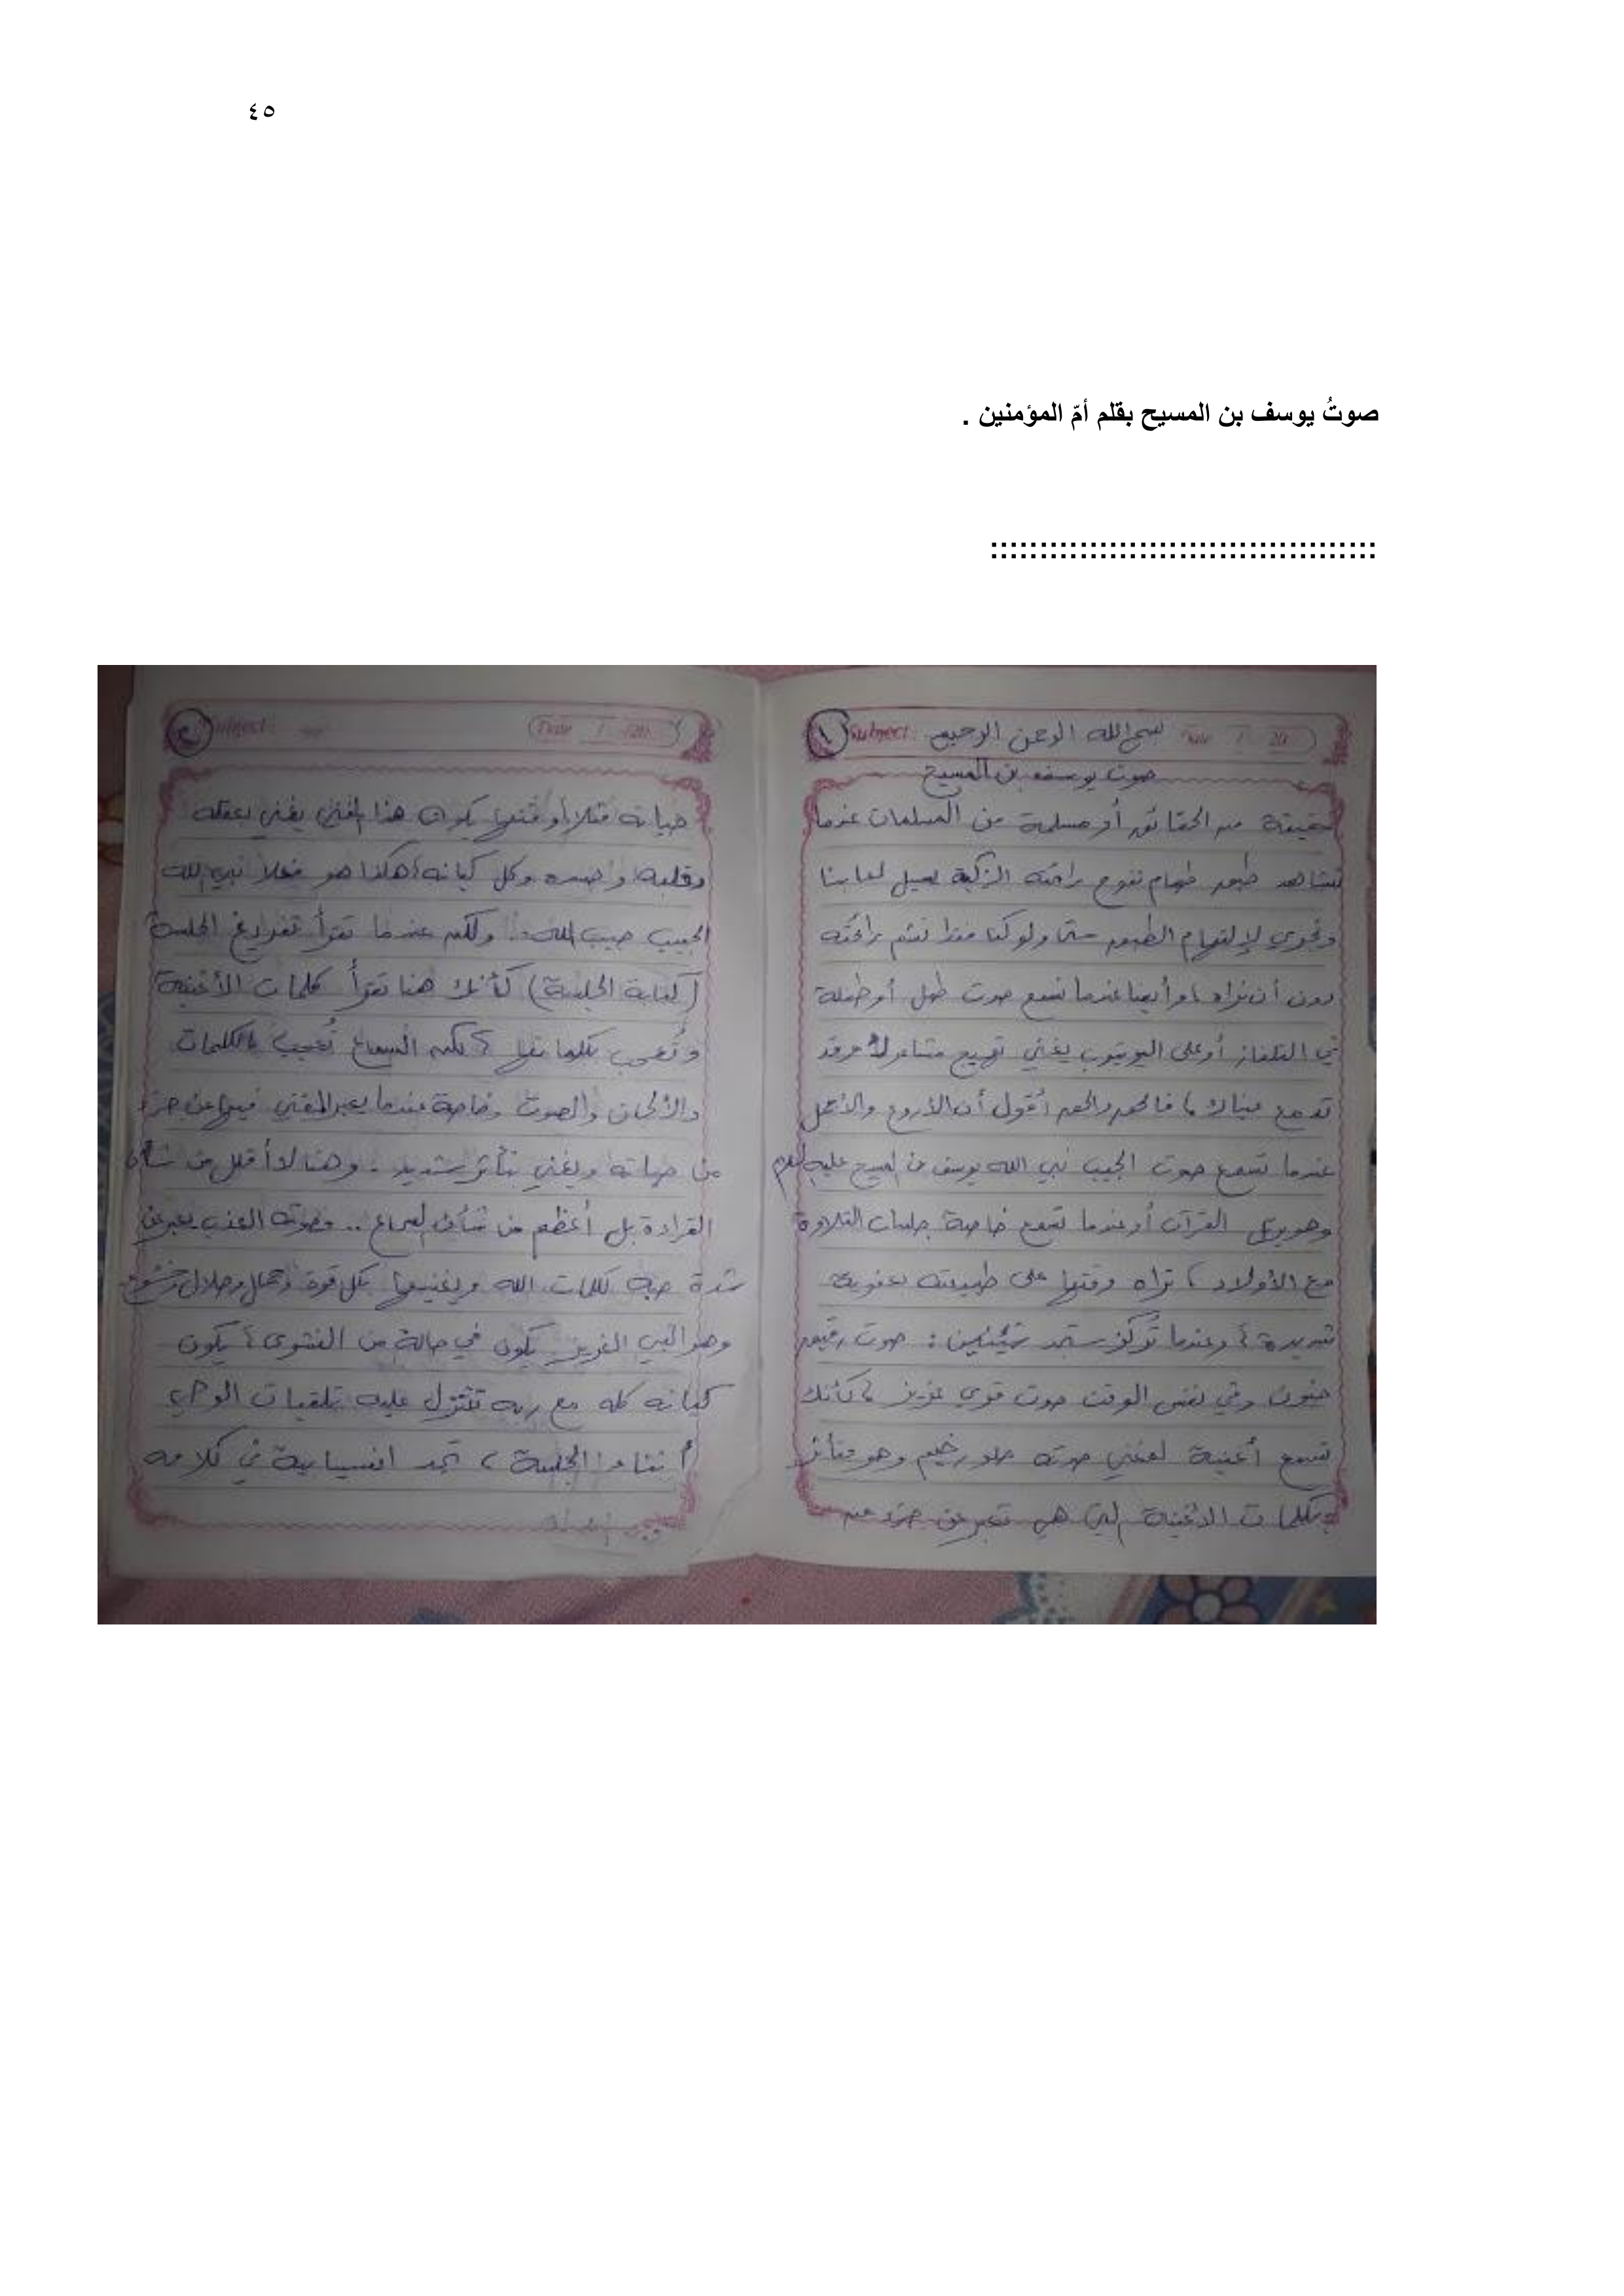 ٤٥
صوتُ يوسف بن المسيح بقلم أمّ المؤمنين .
:::::::::::::::::::::::::::::::::::::::
١ Subject: بسم الله الرحمن الرحيم Date / 20
صوت يوسف بن المسيح
حقيقة من الحقائق أو مسلمة من المسلمات عندما
نشاهد طبق طعام تفوح رائحته الزكية يسيل لعابنا
ونجري لإلتهام الطبق حتى ولو كنا فقط نشم رائحته
دون أن نراه ، وأيضا عندما نسمع صوت طفل أو طفلة
في التلفاز أو على اليوتيوب يغني تهيج مشاعرك وقد
تدمع عيناك ، فالحق والحق أقول أن الأروع والأجمل
عندما تسمع صوت الحبيب نبي الله يوسف بن المسيح عليه السلام
وهو يرتل القرآن أو عندما تسمع خاصة جلسات التلاوة
مع الأولاد ، تراه وقتها على طبيعته بعفوية
شديدة ، وعندما تركز ستجد شيئين : صوت رقيق
حنون وفي نفس الوقت صوت قوي عزيز ، كأنك
تسمع أغنية لمغني صوته حلو رخيم وهو متأثر
بكلمات الأغنية التي هي تعبر عن جزء من
٢ Subject: Date / 20
حياته مثلا أو قصتها يكون هذا المغني يغني بعقله
وقلبه وجسده وكل كيانه ، هكذا هو فعلا نبي الله
الحبيب حبيب الله .. ولكن عندما تقرأ تفريغ الجلسة
(كتابة الجلسة) كأنك هنا تقرأ كلمات الأغنية
وتُعجب بكلماتها ، لكن السماع تُعجب بالكلمات
والألحان والصوت وخاصة عندما يعبر المغني فيها عن جزء
من حياته ويغني بتأثر شديد . وهنا لا أقلل من شأن
القراءة بل أعظم من شأن السماع .. فصوته العذب يعبر عن
شدة حبه لكلمات الله ويغنيها بكل قوة وجمال وجلال
وهو النبي العزيز يكون في حالة من النشوى ، يكون
كيانه كله مع ربه تتنزل عليه تلقيات الوحي
أثناء الجلسة ، تجد انسيابية في كلامه